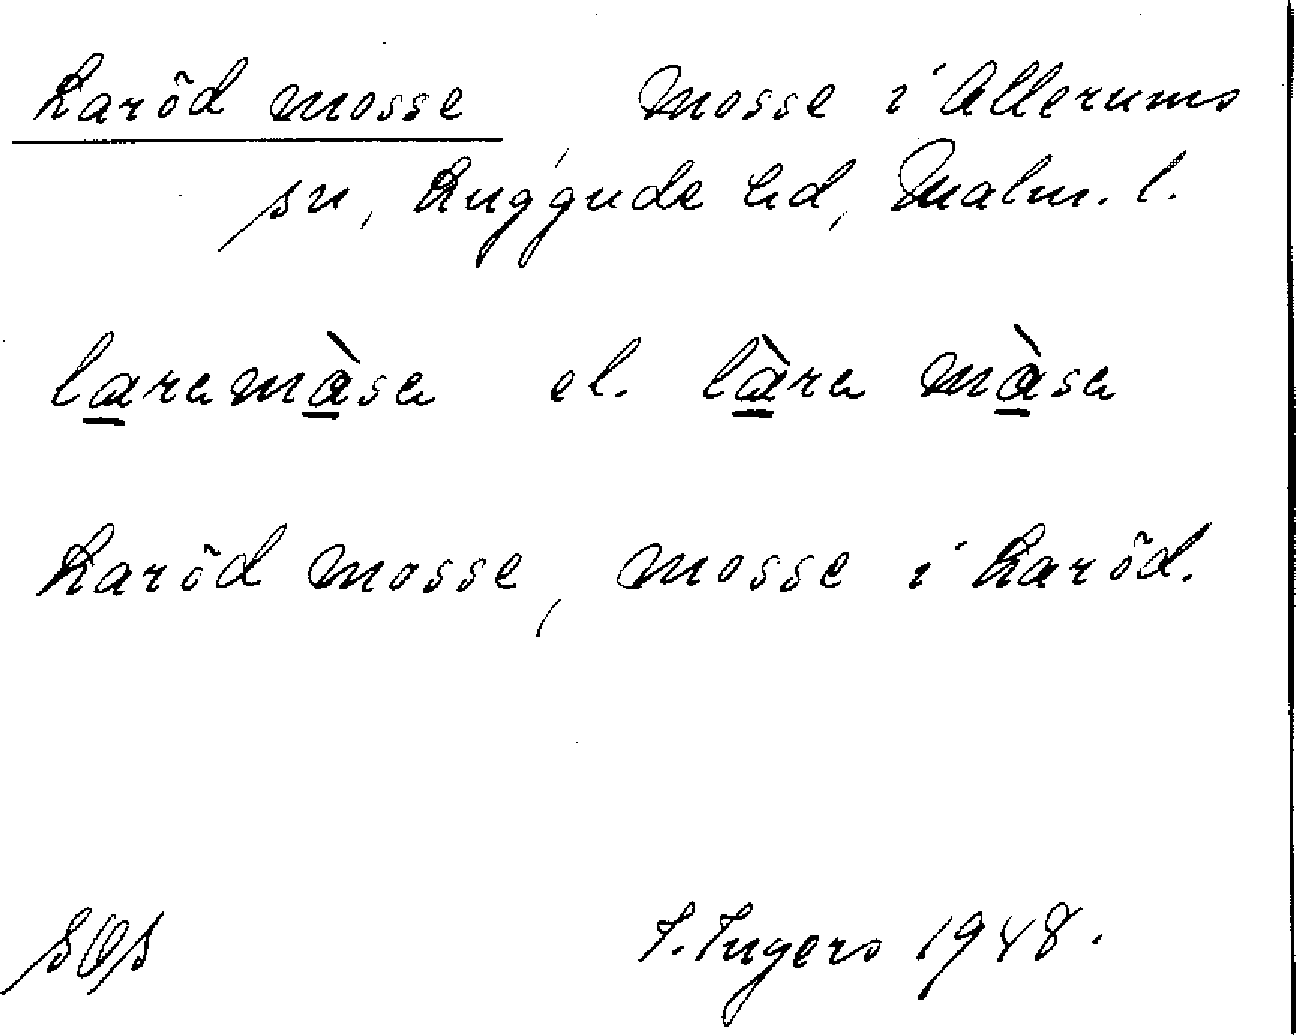 Laröd mosse, Mosse i Allerums
sn, Luggude hd, Malm. l.
laramàsa el. làra màsa
Laröd mosse, mosse i Laröd.
I. Ingers 1948.